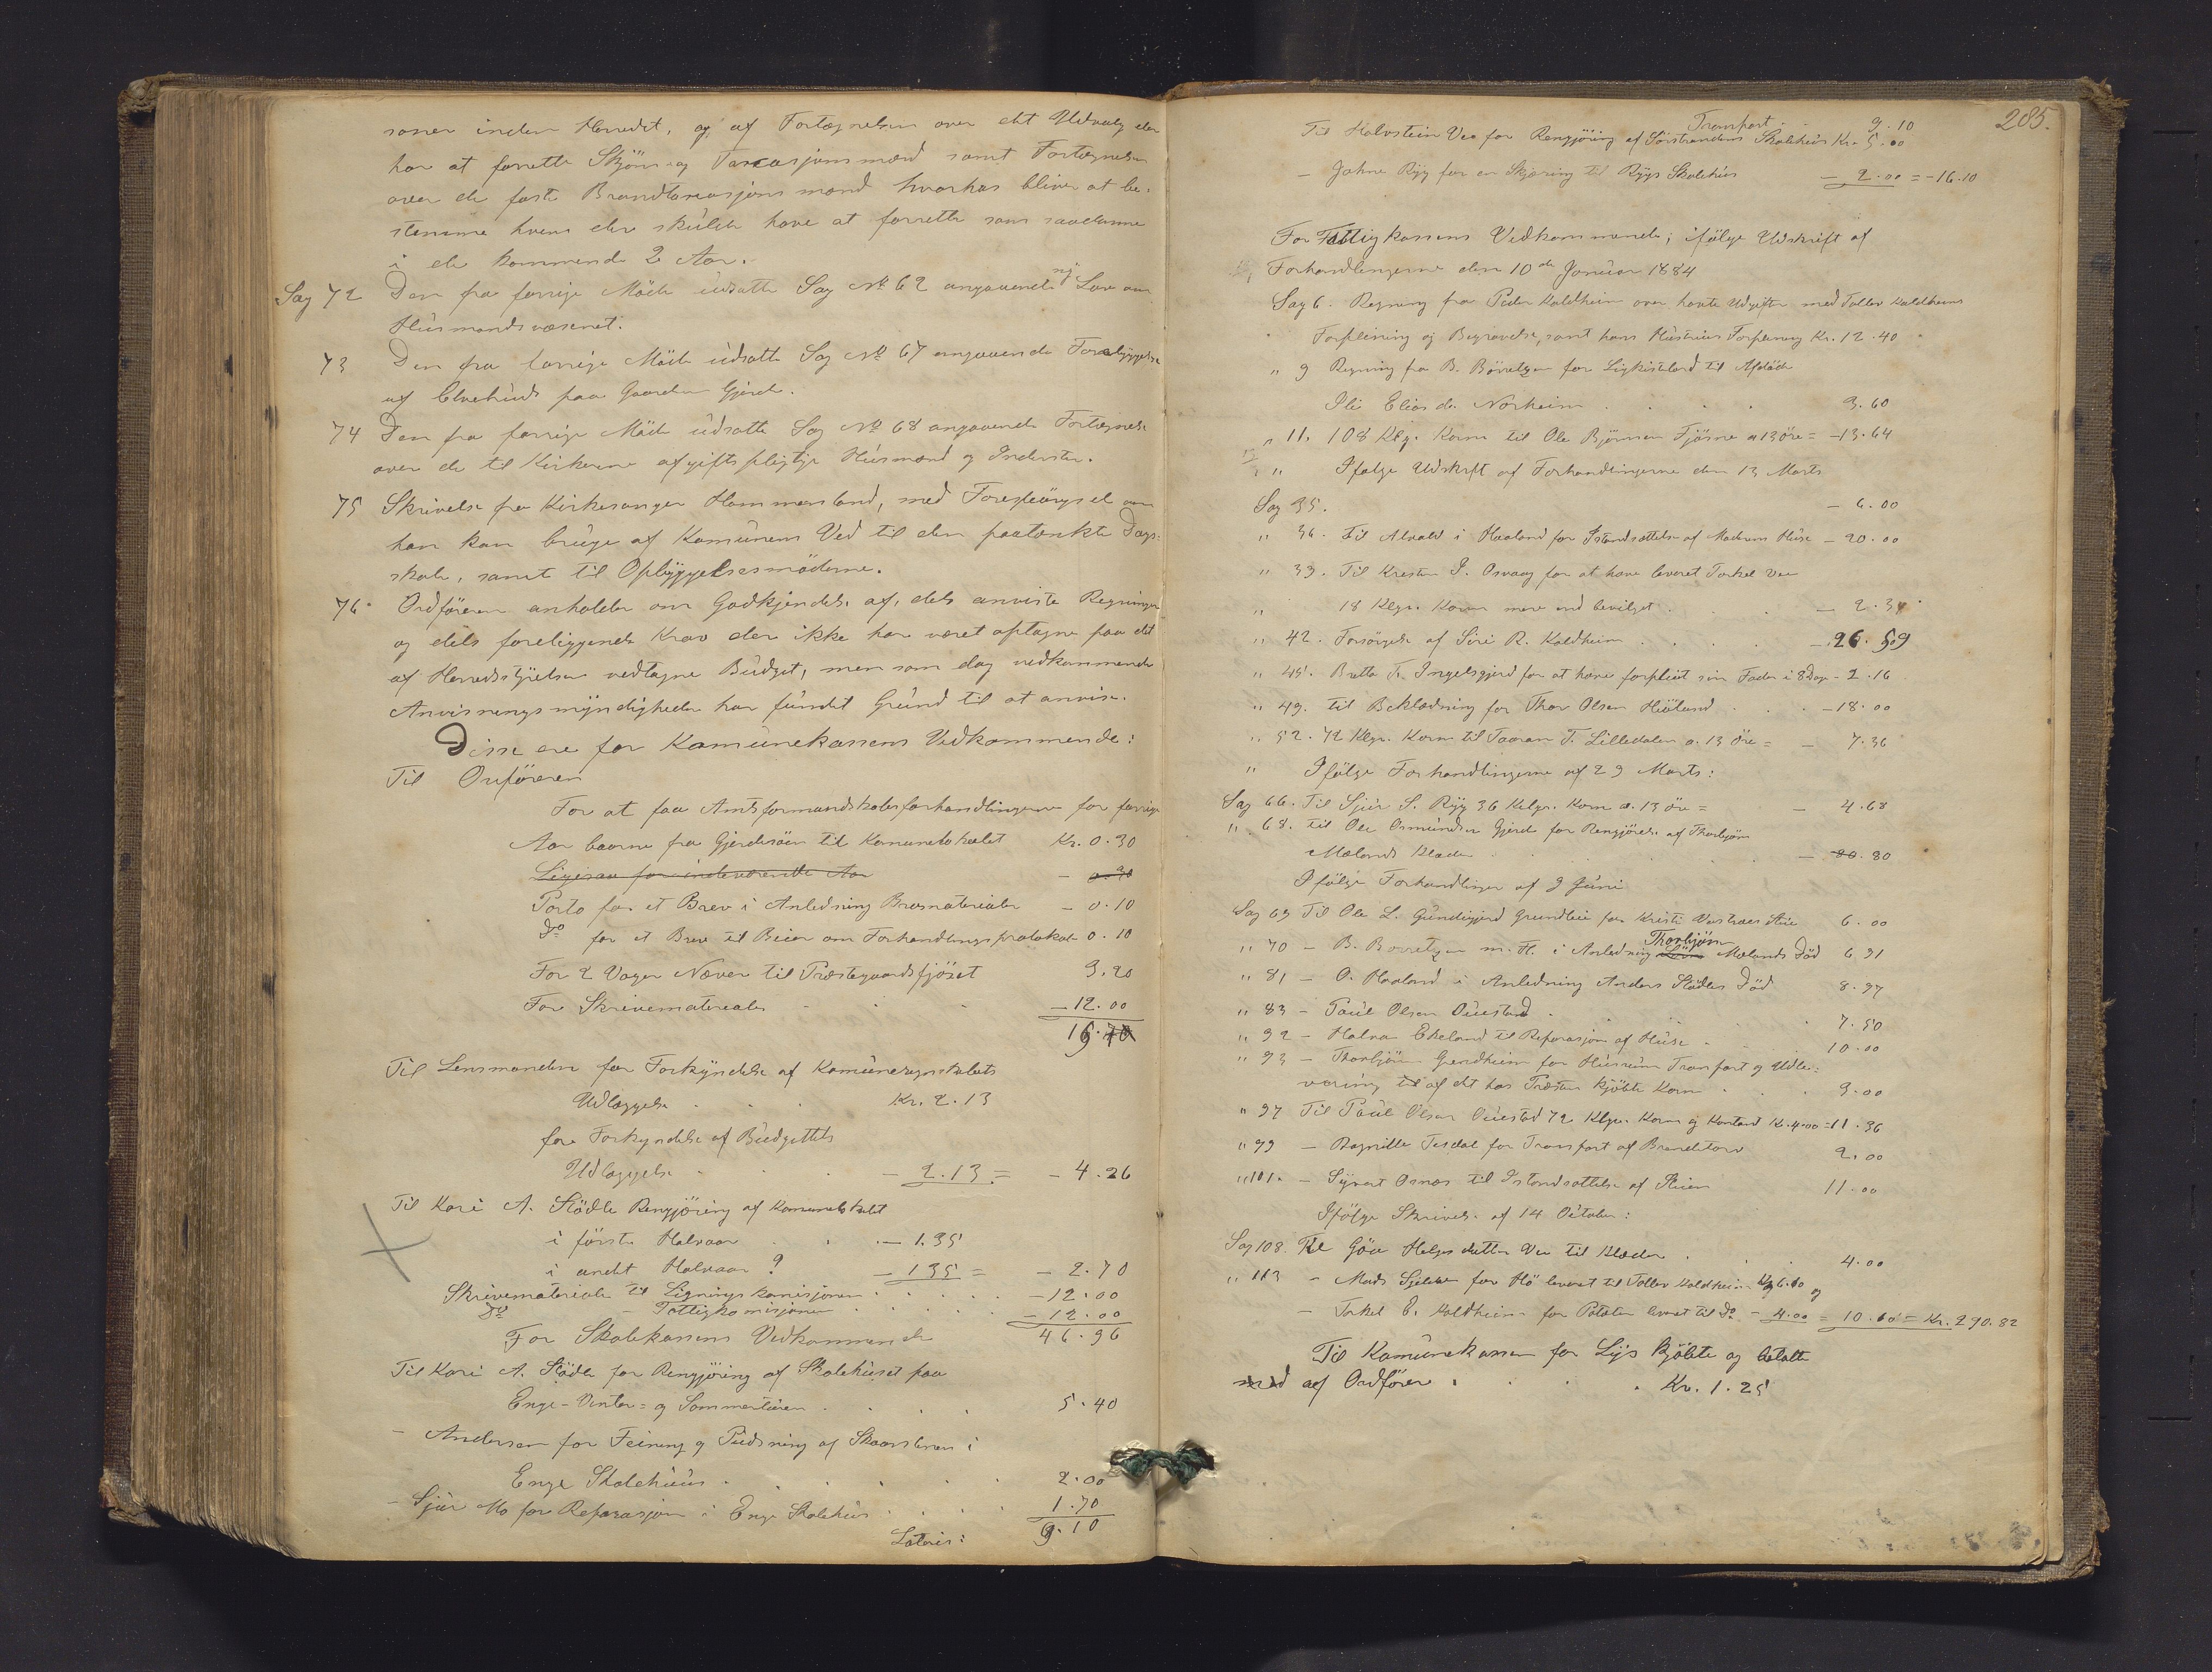 soner inden Herredet, og af Fortegnelsen over det Udvalg der
har at forrette Skjöns og Taxasjonsmænd samt Fortegnelsen
over de faste Brandtaxasjons mænd hvorhos bliver at be-
stemme hvem der skulde have at forrette som saadanne
i de kommende 2 Aar.
Sag 72 Den fra forrige Möde udsatte Sag No 62 angaaende ny Lov om
Husmandsvæsenet.
73 Den fra forrige Möde udsatte Sag No 67 angaaende Forebyggelse
af Elvebrud paa Gaarden Gjerde.
74 Den fra forrige Möde udsatte Sag No 68 angaaende Fortegnelse
over de til Kirkerne afgiftspligtige Husmænd og Inderster.
75 Skrivelse fra Kirkesanger Hammersland, med Forespörgsel om
han kan bruge af Kommunens Ved til den paatænkte Dags-
skole, samt til Opbyggelsesmöderne.
76. Ordföreren anholder om Godkjendelse af, dels anviste Regninger
og dels foreliggende Krav der ikke har været optagne paa det
af Herredsstyrelsen vedtagne Budget, men som dog vedkommende
Anvisningsmyndigheder har fundet Grund til at anvise.
Disse ere for Kommunekassens Vedkommende:
Til Ordföreren
For at faa Amtsformandskabsforhandlingerne for forrige
Aar baarne fra Gjerdesöen til Kommunelokalet Kr. 0.30
Ligesaa for indeværende Aar - 0.30
Porto for et Brev i Anledning Bromaterialer - 0.10
Do for et Brev til Beier om Forhandlingsprotokol - 0.10
For 2 Voger Næver til Præstegaardsfjöset 3.20
For Skrivematerialer - 12.00
16.70
Til Lensmanden for Forkyndelse af Kommuneregnskabets
Udlæggelse . . . Kr. 2.13
for Forkyndelse af Budgettets
Udlæggelse . . . - 2.13 = - 4.26
Til Kari A. Stödle Rengjöring af Kommunelokalet
i förste Halvaar . . . - 1.35
i andet Halvaar ? - 135 = - 2.70
Skrivematerialer til Ligningskomisjonen . . . . - 12.00
Do - Fattigkomisjonen . . . . - 12.00
For Skolekassens Vedkommende 46.96
Til Kari A. Stödle for Rengjöring af Skolehuset paa
Enge - Vinter- og Sommerturen . . . . 5.40
- Andersen for Feining og Pudsning af Skorstenen i
Enge Skolehuus . . . . . 2.00
- Sjur Mo for Reparasjon i Enge Skolehus . . . 1.70
Lateris: 9.10
285.
Transport . . 9.10
Til Halvstein Vee for Rengjöring af Sörstrandens Skolehus Kr. 5.00
- Johne Ryg for en Skjæring til Rygs Skolehus - 2.00 = - 16.10
For Fattigkassens Vedkommende; ifölge Udskrift af
Forhandlingerne den 10de Januar 1884
Sag 6. Regning fra Peder Kaldheim over havte Udgifter med Tollev Kaldheims
Forpleining og Begravelse, samt hans Hustrues Forpleining Kr. 12.40
" 9 Regning fra B. Börretzen for Ligkistebord til Afdöde
Ili Elias d. Norheim . . . . 3.60
" 11. 108 Klgr. Korn til Ole Björnsen Fjösne a 13 öre = - 13.64
" Ifölge Udskrift af Forhandlingerne den 13 Marts
Sag 35. - 6.00
" 36. Til Alvald i Haaland for Istandsættelse af Moderens Huse - 20.00
" 33. Til Kresten I. Osvaag for at have leveret Torkel Vee
" 18 Klgr. Korn mere end bevilget . . . - 2.34
" 42. Forsörgelse af Siri R. Kaldheim . . . . - 26.59
" 45. Bretta T. Ingelsgjerd for at have forpleiet sin Fader i 8 Dage - 2.16
" 49. til Beklædning for Thor Olsen Hiöland . . . - 18.00
" 52. 72 Klgr. Korn til Taaran T. Lilledalen a. 13 öre = - 7.36
" Ifölge Forhandlingerne af 29 Marts:
Sag 66. Til Sjur S. Ryg 36 Klgr. Korn a. 13 öre = - 4.68
" 68. til Ole Osmundsen Gjerde for Rengjörelse af Thorbjörn
Mælands Klæder . . . . - 80.80
Ifölge Forhandlinger af 9 Juni
Sag 69 Til Ole L. Gundigjerd Grundleie for Kristi 6.00
" 70 - B. Borretzen m. fl. i Anledning Thorbjörn Mælands Död 6.31
" 81 - O. Haaland i Anledning Anders Stödles Död 8.97
" 83 - Paul Olsen Ouestad . . . . 7.50
" 92 - Halvor Ekeland til Reparasjon af Huse . . . 10.00
" 93 - Thorbjörn Gjerdheim for Husrum Transport og Udle-
vering til af det hos Præsten kjöbte Korn . . . 9.00
" 97 Til Paul Olsen Ouestad 72 Klgr. Korn og Kontant Kr. 4.00 = 11.36
" 99 - Ragnilde Tesdal for Transport af Brændetorv 2.00
" 101. - Syvert Osnæs til Istandsættelse af 11.00
Ifölge Skrivelse af 14 October:
Sag 108. Til Göa Helgesdatter Vee til Klæder . . . 4.00
" 113 - Mads Sjelden for Hö leveret til Tollev Kaldheim Kr. 6.60 og
- Torkel E. Kaldheim for Poteter leveret til Do - 4.00 = 10.60 = Kr. 290.82
Til Kommunekassen for Lys kjöbte og betalte
med af Ordförer . . . . Kr. 1.25